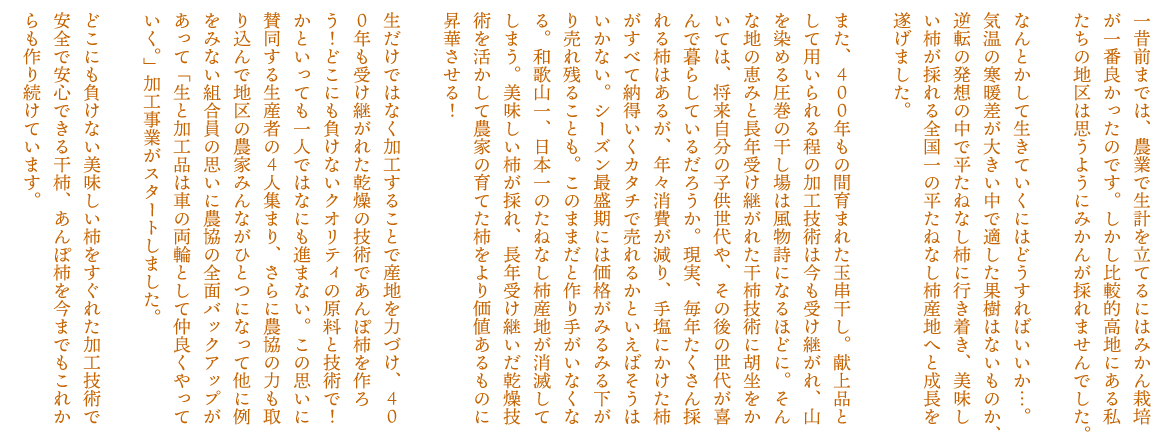 一昔前までは、農業で生計を立てるにはみかん栽培
が一番良かったのです。しかし比較的高地にある私
たちの地区は思うようにみかんが採れませんでした。
なんとかして生きていくにはどうすればいいか…。
気温の寒暖差が大きい中で適した果樹はないものか、
逆転の発想の中で平たねなし柿に行き着き、美味し
い柿が採れる全国一の平たねなし柿産地へと成長を
遂げました。
また、４００年もの間育まれた玉串干し。献上品と
して用いられる程の加工技術は今も受け継がれ、山
を染める圧巻の干し場は風物詩になるほどに。そん
な地の恵みと長年受け継がれた干柿技術に胡坐をか
いては、将来自分の子供世代や、その後の世代が喜
んで暮らしているだろうか。現実、毎年たくさん採
れる柿はあるが、年々消費が減り、手塩にかけた柿
がすべて納得いくカタチで売れるかといえばそうは
いかない。シーズン最盛期には価格がみるみる下が
り売れ残ることも。このままだと作り手がいなくな
る。和歌山一、日本一のたねなし柿産地が消滅して
しまう。美味しい柿が採れ、長年受け継いだ乾燥技
術を活かして農家の育てた柿をより価値あるものに
昇華させる！
生だけではなく加工することで産地を力づけ、４０
０年も受け継がれた乾燥の技術であんぽ柿を作ろ
う！どこにも負けないクオリティの原料と技術で！
かといっても一人ではなにも進まない。この思いに
賛同する生産者の４人集まり、さらに農協の力も取
り込んで地区の農家みんながひとつになって他に例
をみない組合員の思いに農協の全面バックアップが
あって「生と加工品は車の両輪として仲良くやって
いく。」加工事業がスタートしました。
どこにも負けない美味しい柿をすぐれた加工技術で
安全で安心できる干柿、あんぽ柿を今までもこれか
らも作り続けています。